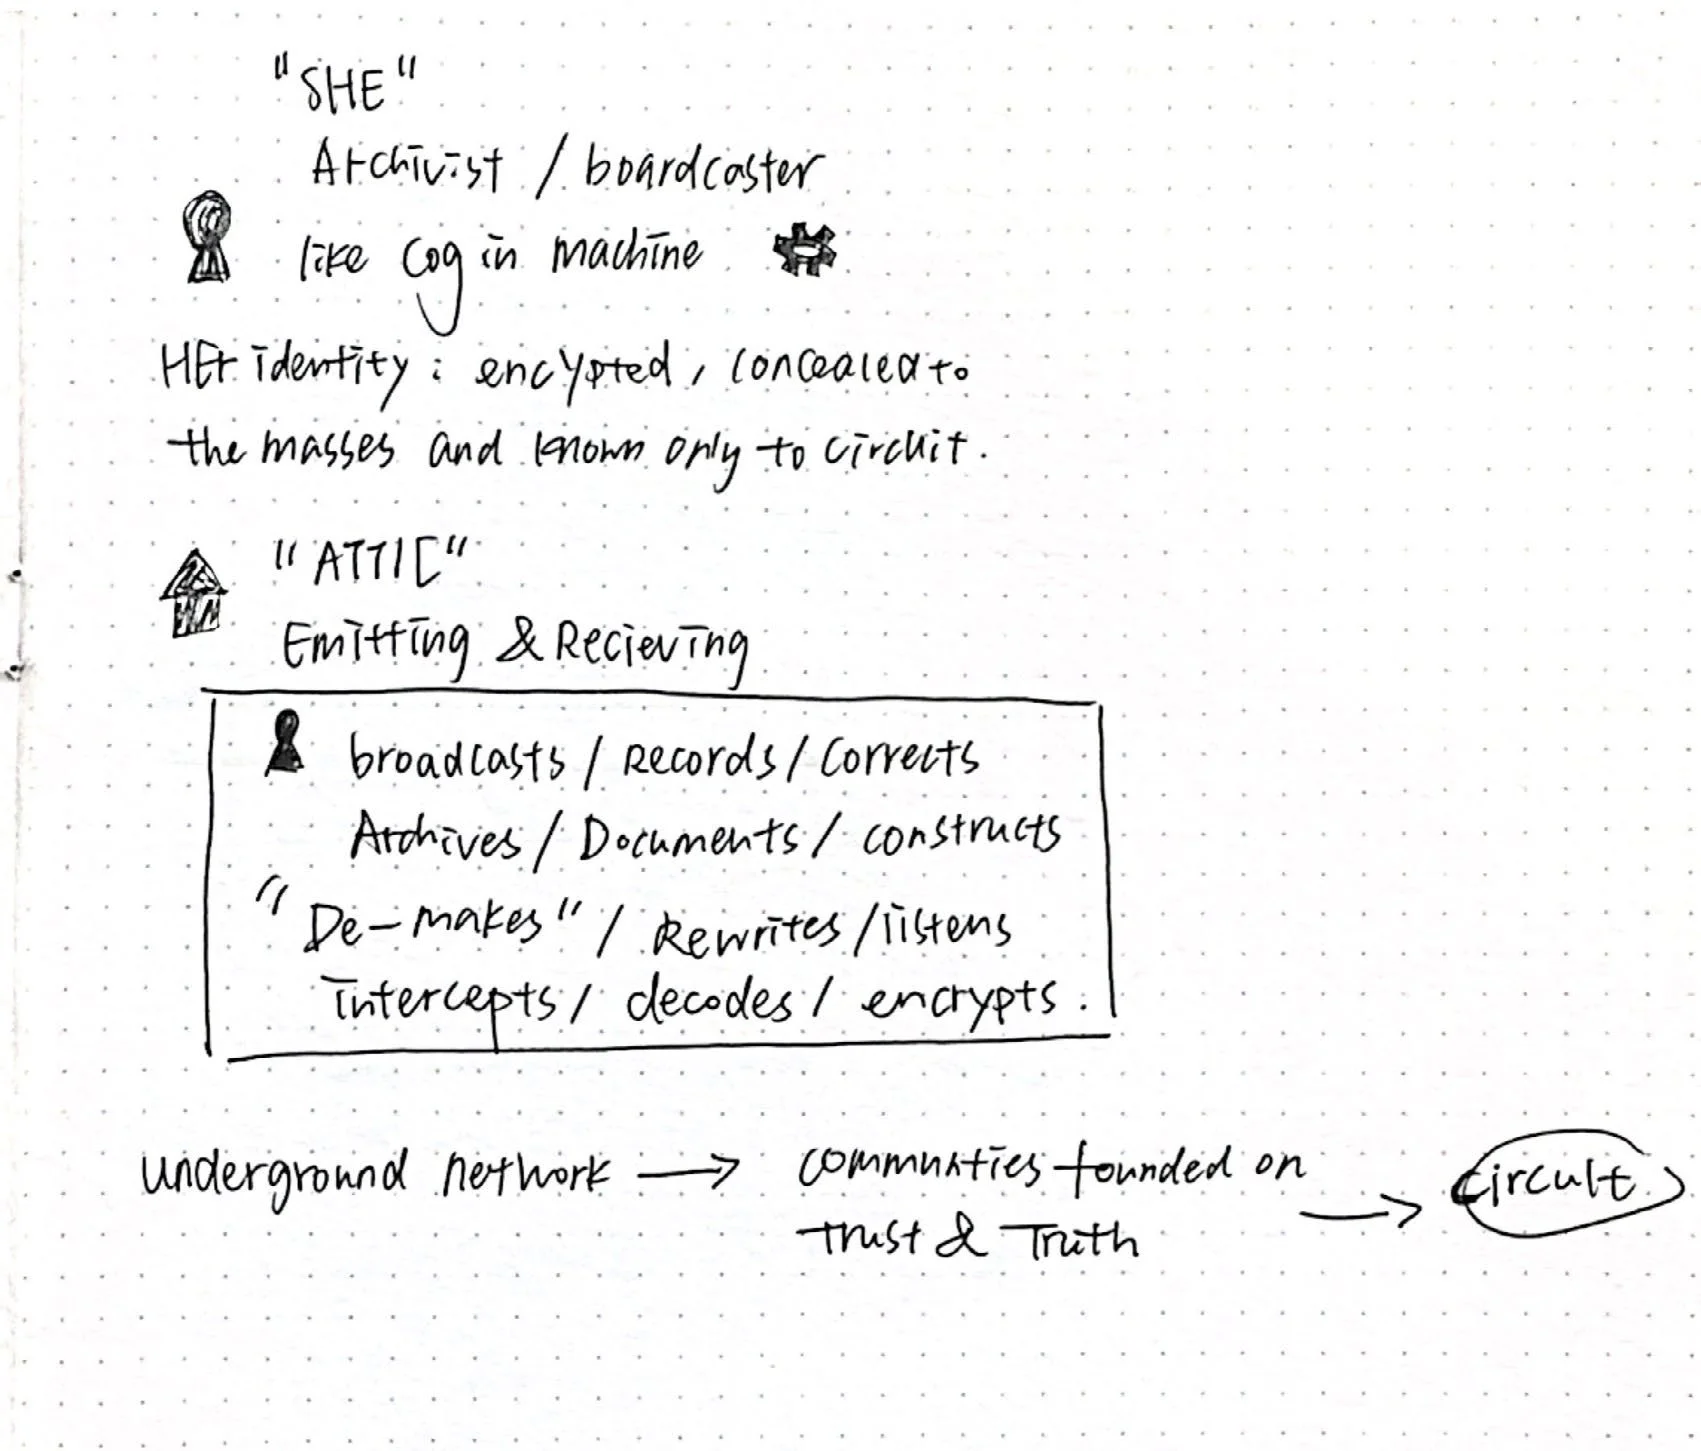 "SHE"
Archivist / boardcaster
like cog in machine
HEr identity : encypted, concealed to
the masses and known only to circuit.
"ATTIC"
Emitting & Recieving
broadcasts / Records / Corrects
Archives / Documents / constructs
"De-makes" / Rewrites / listens
intercepts / decodes / encrypts.
underground network → communties founded on → circuit
trust & Truth